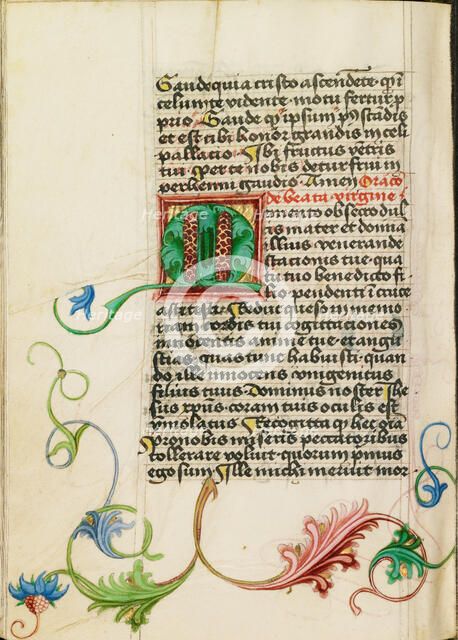 Gaude quia cristo ascendente · qui
celum te vidente · motu fertur p
prio · Gaude qu ipsum post scandis
et est tibi honor grandis in celi
pallacio · Ubi fructus ventris
tui · Per te nobis detur frui in
perhenni gaudio · Amen Oracō
de beata virgine
Memento obsecro dul
cis mater et domīa
illius venerande
stacionis tue · qua
tu tuo benedicto fi
lio pendenti ī cruce
astitisti · Revoc queso in memo
riam cordis tui cogittaciones
innocentis anime tue et angu
stias · quas tunc habuisti · quan
do ille innocens unigenitus
filius tuus · Dominus noster Ihe
sus xpus · coram tuis oculis est
ymolatus · Recogitta qu hec gra
pro nobis miseris peccatoribus
tollerare voluit · quorum primus
ego sum · Ille michi meruit mor
Heritage